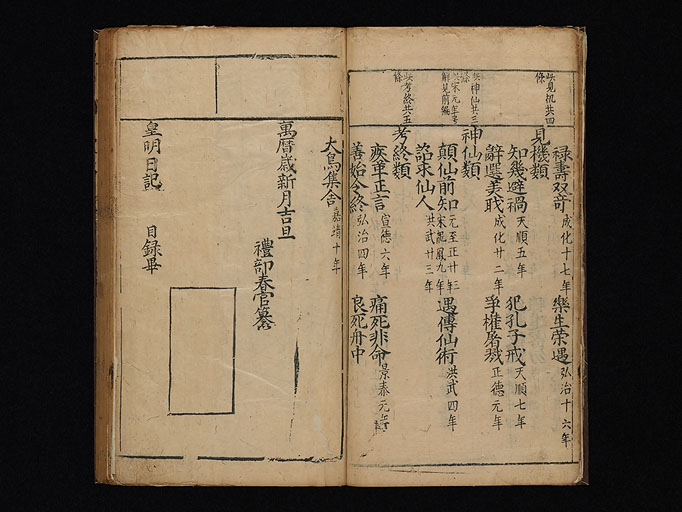 共見机共四條
祿壽双奇 成化十七年 樂生荣遇 弘治十六年
見機類
知幾避禍 天順五年 犯孔子戒 天順七年
辭選美戝 成化廿二年 爭權屠戮 正德元年
共神仙共三條
共宋元年号解見前編
神仙類
顛仙前知 元至正廿年三宋龍鳳九年 遇傳仙術 洪武四年
詔求仙人 洪武廿三年
共考終共五條
考終類
疾革正言 宣德六年 痛死非命 景泰元年
善始令終 弘治四年 良死舟中
大鳥集舍 嘉靖十年
萬曆歲新月吉旦
禮部春官纂
皇明日記 目録畢